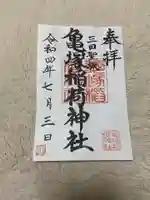 奉拝
三田聖坂
亀塚稲荷神社
令和四年七月三日